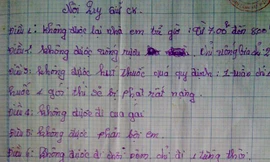 Nội Quy Giữ CK
Điều 1: Không được la nhà em trễ giờ: Từ 7.00 đến 8.00
Điều 2: Không được uống rượu chỉ
Điều 3: Không được hút thuốc quá quy định: 1 tuần chỉ
thuốc 1 gói thì sẽ bị phạt rất nặng.
Điều 4: không được đi cua gái
Điều 5: không được phản bội em.
Điều 6: Không được đi chơi đêm, chỉ đi 1 tiếng thôi.